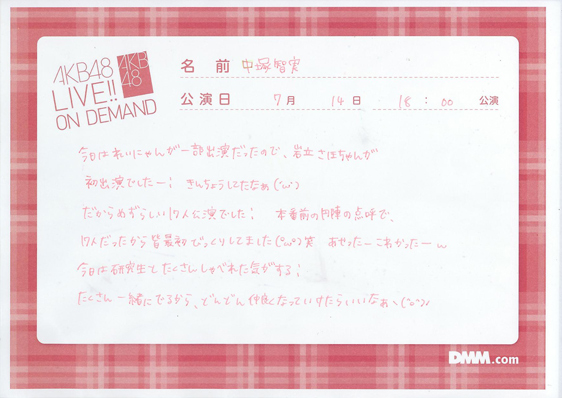 AKB48
LIVE!!
ON DEMAND
AKB
48
名 前 中塚智実
公演日 7月 14日 18:00 公演
今日はれいにゃんが一部出演だったので、岩立さほちゃんが
初出演でしたー! きんちょうしてたなぁ(´ω`)
だからめずらしい17人公演でした! 本番前の円陣の点呼で、
17人だったから皆最初びっくりしてました(°ω°)笑 おやったー これかったーん
今日は研究生とたくさんしゃべれた気がする!
たくさん一緒にでるから、どんどん仲良くなっていけたらいいなぁ~(´ω`)
DMM.com